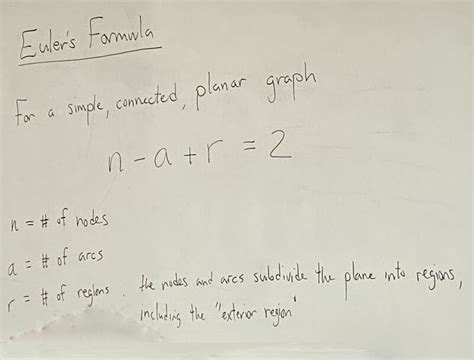 Euler's Formula
For a simple, connected, planar graph
n - a + r = 2
n = # of nodes
a = # of arcs
r = # of regions . the nodes and arcs subdivide the plane into regions,
including the "exterior region"